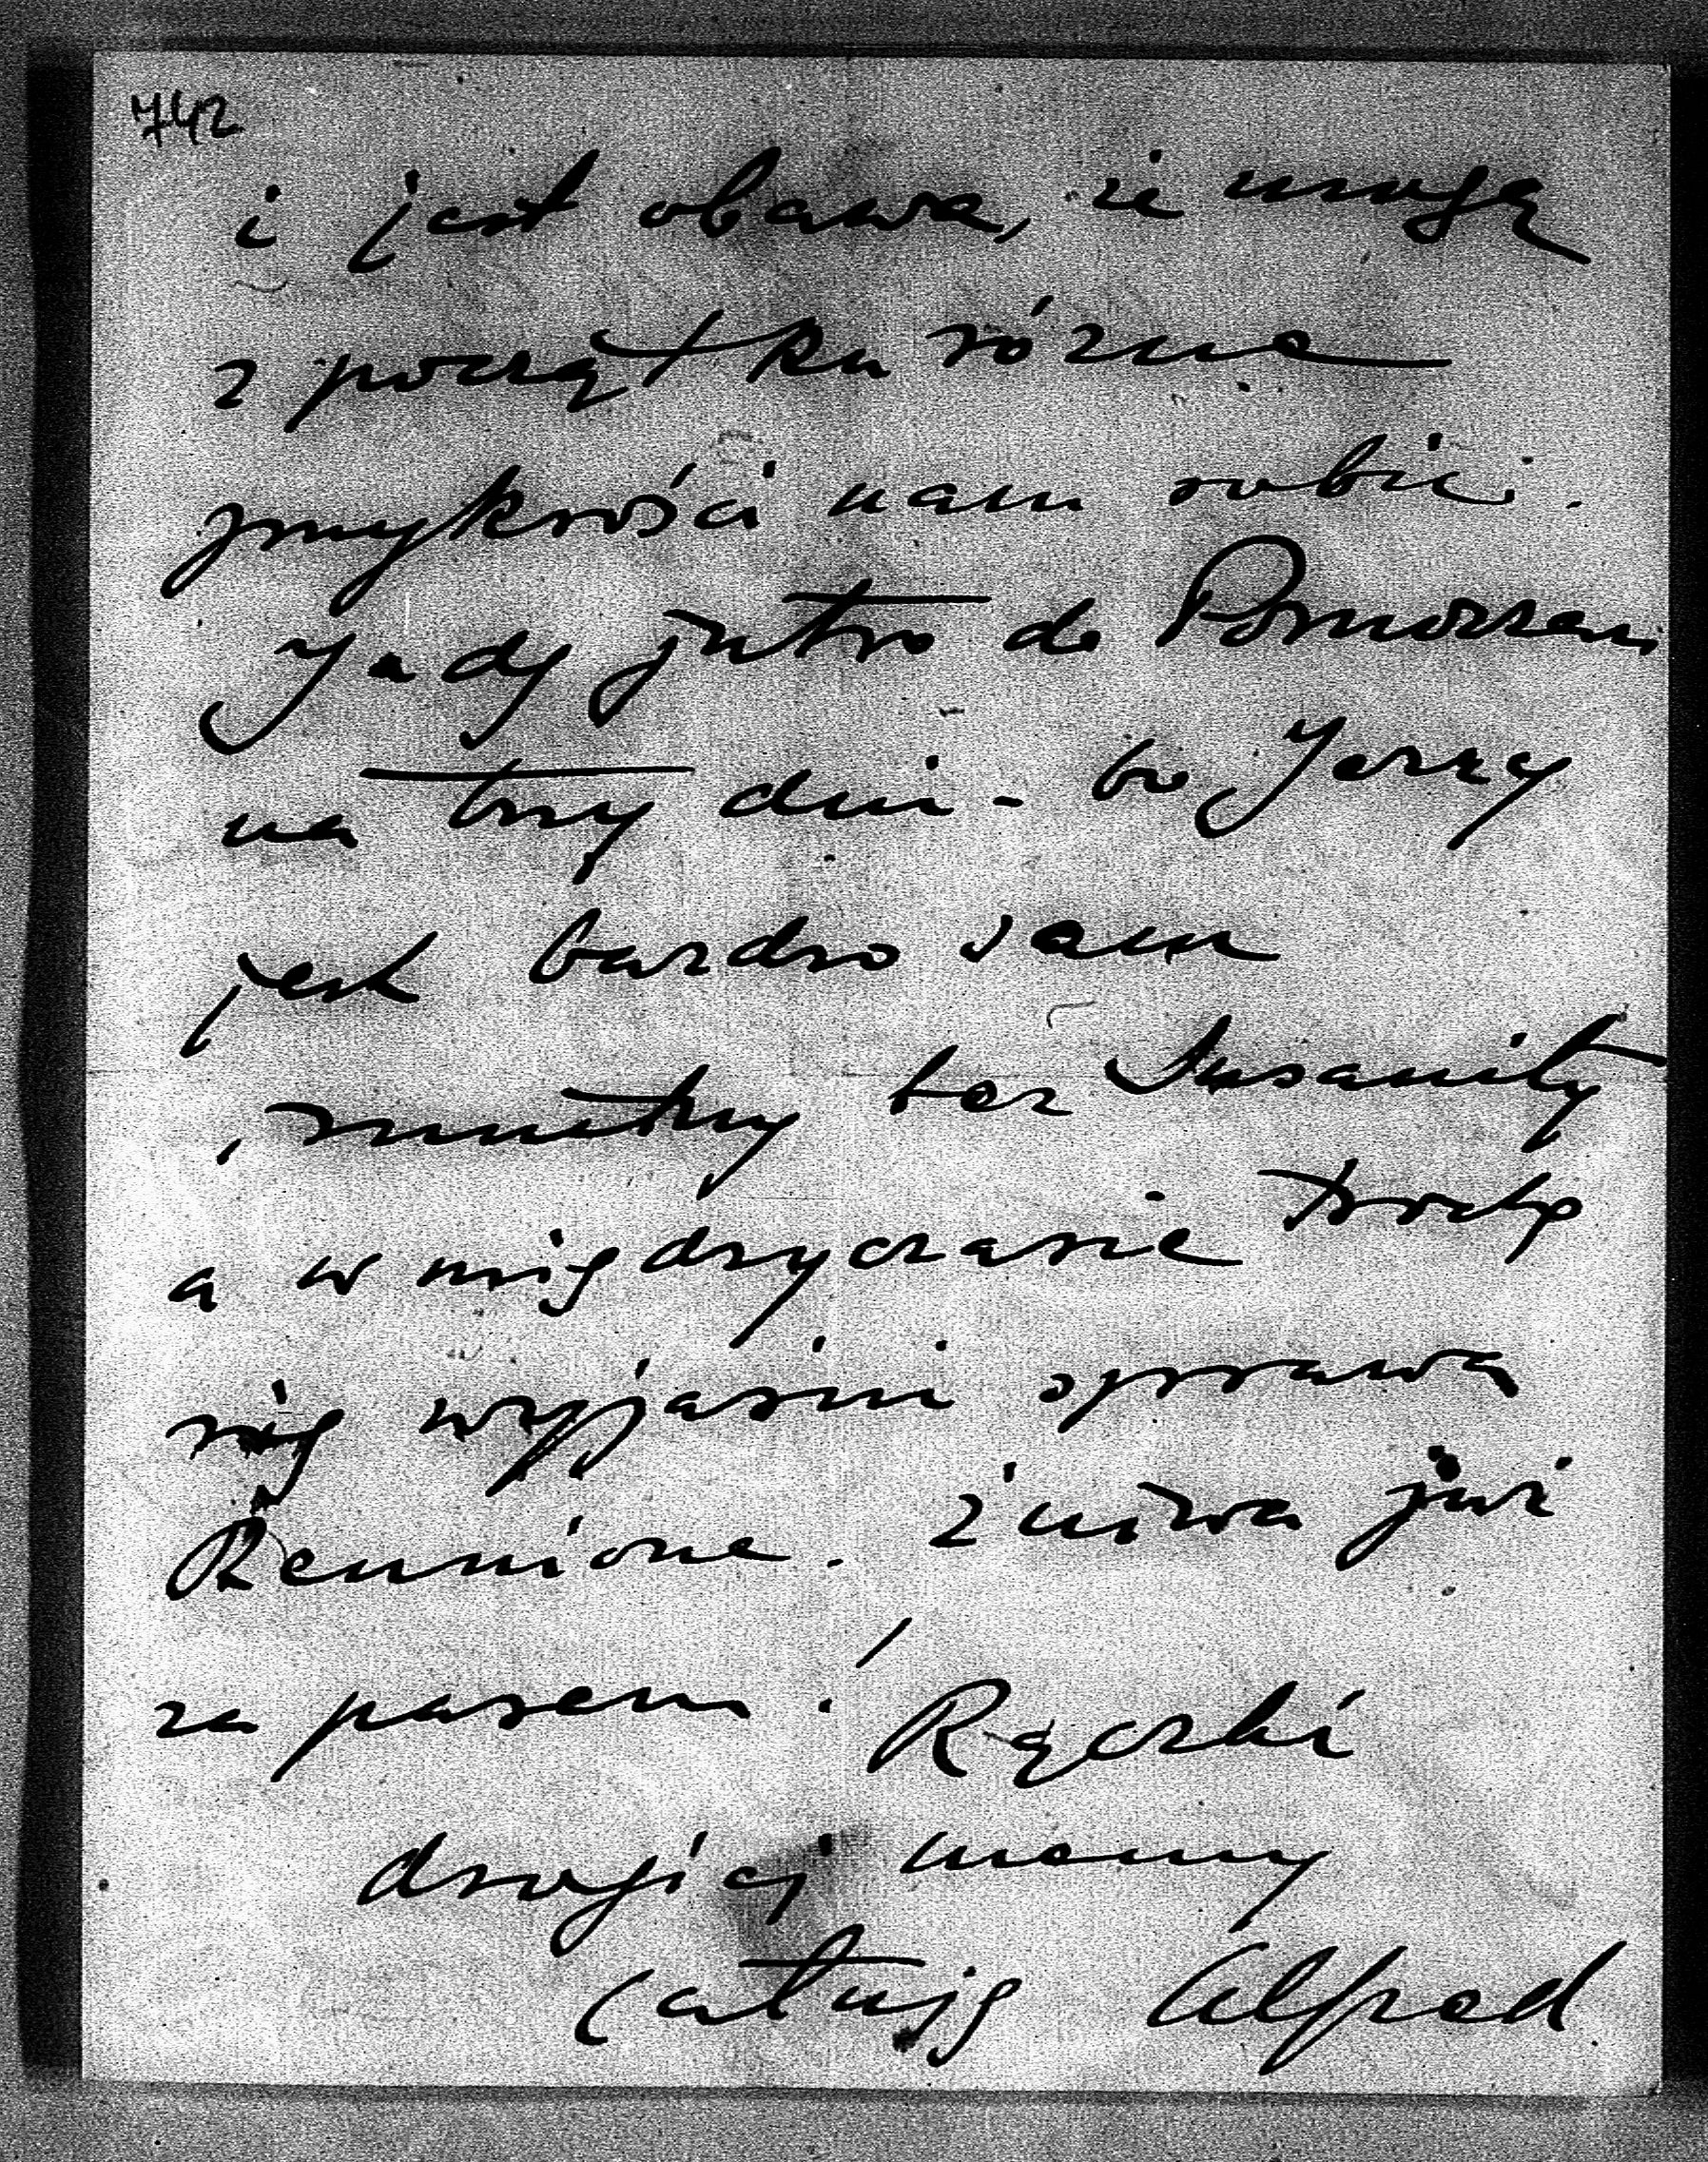 742
i jest obawa, że mogą
z początku różne
przykrości nam robić.
Jadę jutro do Pomorzan
na trzy dni - bo Jerzy
jest bardzo sam
, smutny bez
a w międzyczasie trochę
się wyjaśni sprawa
Reunione. Żniwa już
za pasem. Rączki
drogiej mamy
całuję Alfred